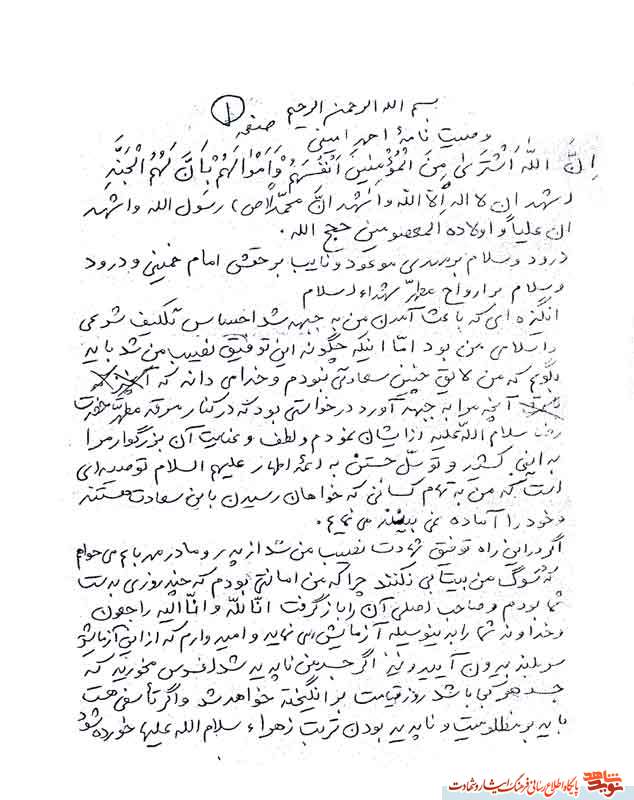 بسم الله الرحمن الرحیم صفحه ۱
وصیت نامهٔ احمد امینی
اِنَّ اللّهَ اَشْتَریٰ مِنَ الْمُؤْمِنینَ اَنْفُسَهُمْ وَاَمْوالَهُمْ بِاَنَّ لَهُمُ الْجَنَّهِ
اشهد ان لا اله اِلّا الله و اشهد انَّ محمّداً (ص) رسول الله و اشهد
ان علیاً و اولاده المعصومین حجج الله .
درود و سلام بر مهدی موعود و نایب بر حقش امام خمینی و درود
و سلام بر ارواح مطهّر شهداء اسلام
انگیزه ای که باعث آمدن من به جبهه شد احساس تکلیف شرعی
و اسلامی من بود امّا اینکه چگونه این توفیق نصیب من شد باید
بگویم که من لایق چنین سعادتی نبودم و خدا می داند که
آنچه مرا به جبهه آورد درخواستی بود که در کنار مرقد مطهّر حضرت
رضا سلام اللّه علیه از ایشان نمودم و لطف و عنایت آن بزرگوار مرا
به اینجا کشید و توسّل جستن به ائمهٔ اطهار علیهم السلام توصیه ای
است که من به تمام کسانی که خواهان رسیدن باین سعادت هستند
و خود را آماده نمی بینند می نمایم .
اگر در این راه توفیق شهادت نصیب من شد از پدر و مادر مهربانم می خواهم
که در سوگ من بیتابی نکنند چرا که من امانتی بودم که چند روزی به دست
شما بودم و صاحب اصلی آن را باز گرفت انّا للّه و انّا الیه راجعون
و خداوند شما را بدینوسیله آزمایش می نماید و امید وارم که از این آزمایش
سربلند بیرون آیید و نیز اگر جسد من ناپدید شد افسوس مخورید که
جسد هر کجا باشد روز قیامت بر انگیخته خواهد شد و اگر تأسفی هست
باید بر مظلومیت و ناپدید بودن تربت زهراء سلام الله علیها خورده شود
نوید شاهد
پایگاه اطلاع رسانی فرهنگ ایثار و شهادت